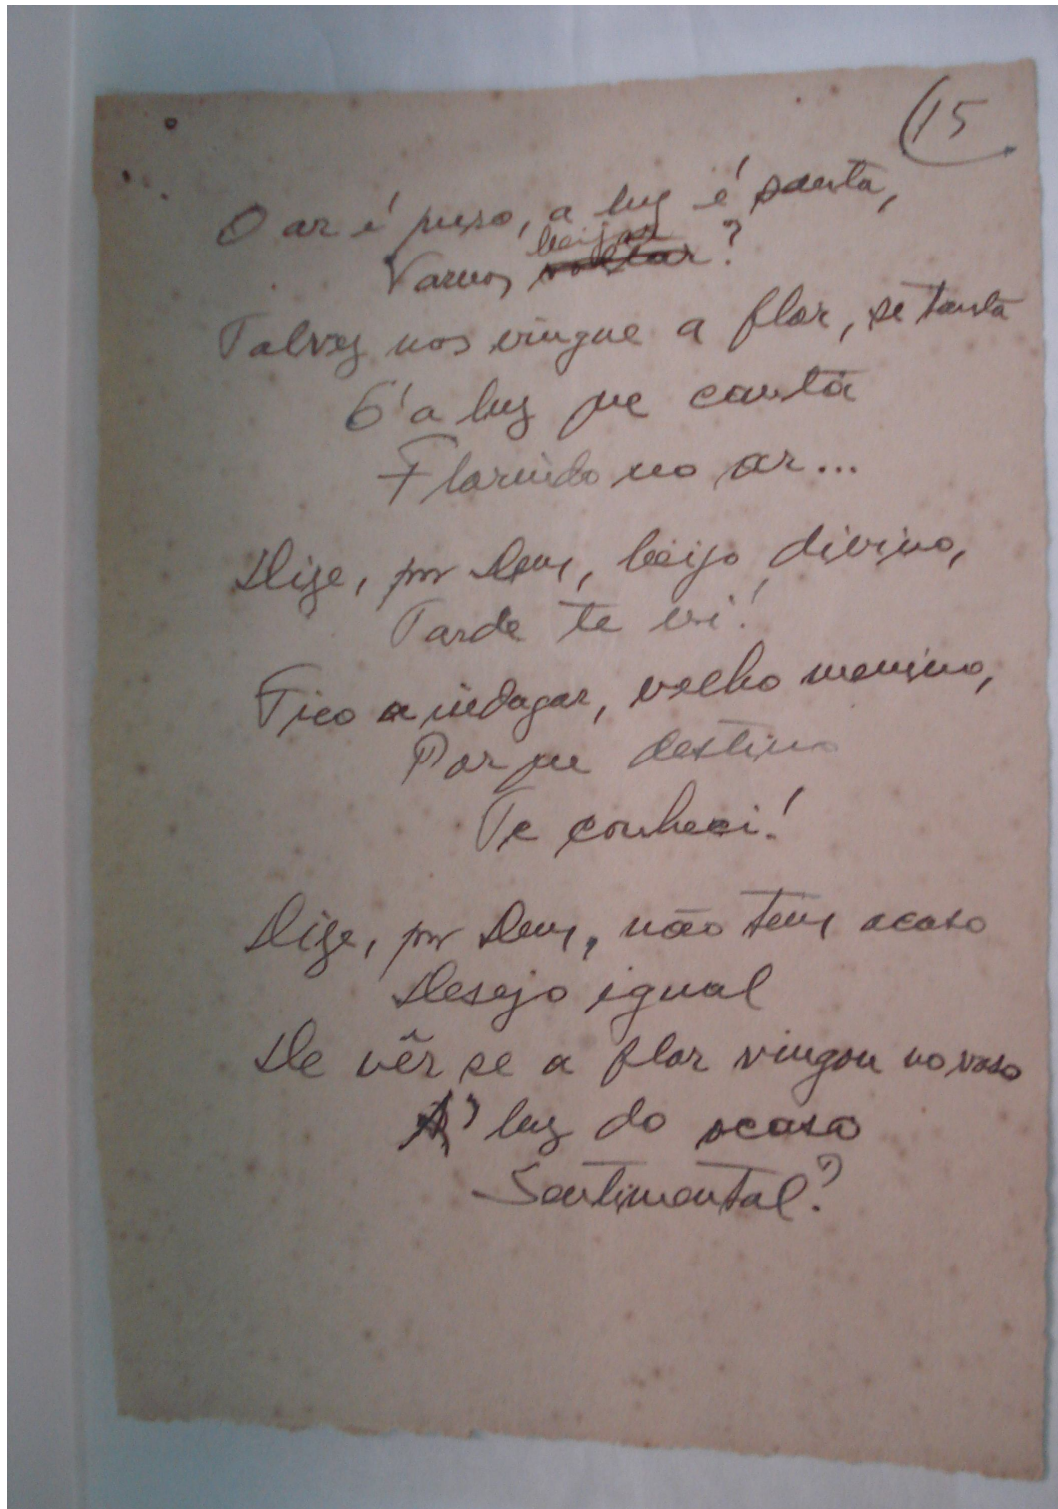 15
O ar é puro, a luz é santa,
beijar
Vamos voltar?
Talvez nos vingue a flor, se tanta
E' a luz que canta
Florindo no ar...
Dize, por Deus, beijo divino,
Tarde te vi!
Fico a indagar, velho menino,
Por que destino
Te conheci!
Dize, por Deus, não tens acaso
Desejo igual
De vêr se a flor vingou no vaso
A' luz do ocaso
Sentimental?